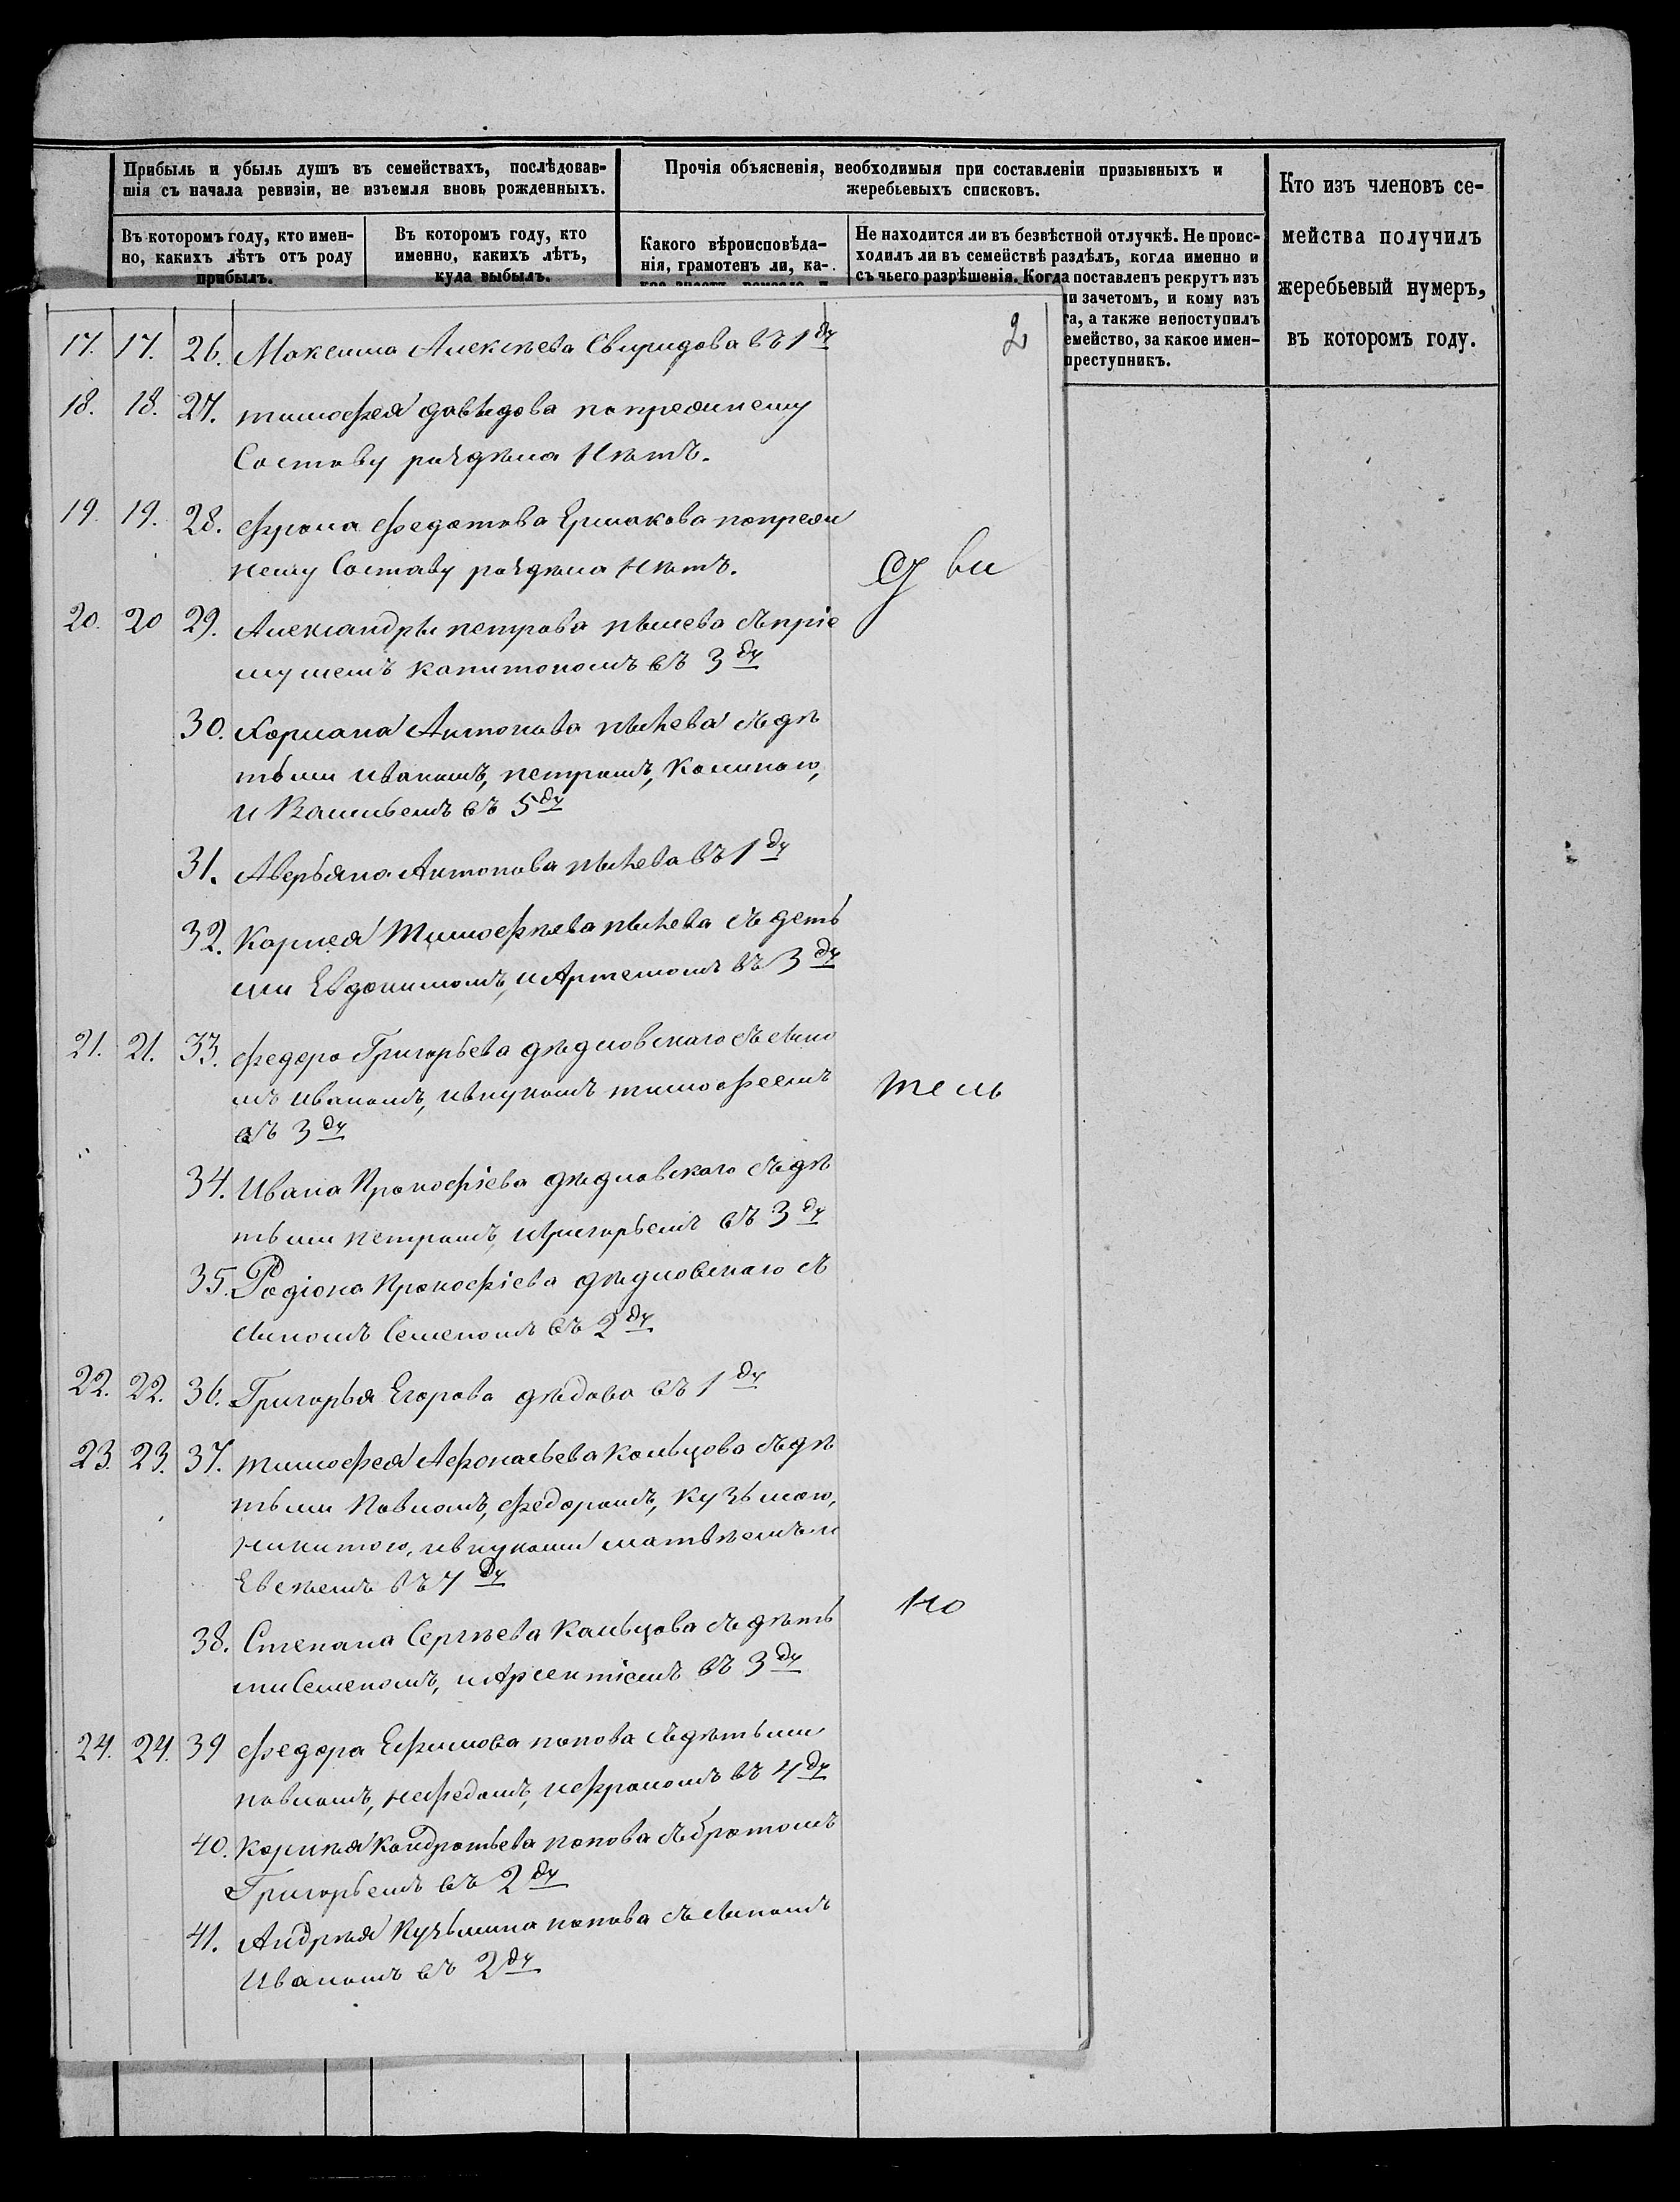 Прибыль и убыль душъ въ семействахъ, послѣдовав-
шія съ начала ревизіи, не изъемля вновь рожденныхъ.
Въ которомъ году, кто имен-
но, какихъ лѣтъ отъ роду
прибылъ.
Въ которомъ году, кто
именно, какихъ лѣтъ,
куда выбылъ.
Прочія объясненія, необходимыя при составленіи призывныхъ и
жеребьевыхъ списковъ.
Какого вѣроисповѣда-
нія, грамотенъ ли, ка-
Не находится ли въ безвѣстной отлучкѣ. Не проис-
ходилъ ли въ семействѣ раздѣлъ, когда именно и
съ чьего разрѣшенія. Когда поставленъ рекрутъ изъ
и зачетомъ, и кому изъ
та, а также непоступилъ
емейство, за какое имен-
преступникъ.
Кто изъ членовъ се-
мейства получилъ
жеребьевый нумеръ,
въ которомъ году.
2
17. 17. 26. Максима Алексѣева Свиридова въ 1 ду
18. 18. 27. тимофея давыдова попрежнему
Составу раздѣла Нѣтъ.
19. 19. 28. фрола федотова Ермакова попреж
нему Составу раздѣла Нѣтъ.
20. 20 29. Александры петрова съ пріе
мушемъ капитономъ въ 3 ду
30. Харлана Антонова съ дѣ
тьми иваномъ, петромъ, Калиною,
и Васильемъ въ 5 ду
31. Аверьяна Антонова въ 1 ду
32. Корнея Тимофѣева съ деть
ми Евдокимомъ, и Артемомъ въ 3 ду
21. 21. 33. федора Григорьева дѣдловскаго съ сыно
мъ иваномъ, и внукомъ тимофеемъ
въ 3 ду
34. Ивана Прокофіева дѣдловскаго съ дѣ
тьми петромъ, и Григорьемъ въ 3 ду
35. Родіона Прокофіева дѣдловскаго съ
сыномъ Семеномъ въ 2 ду
22. 22. 36. Григорья Егорова дѣдова въ 1 ду
23. 23. 37. тимофея Афонасьева Кольцова съ дѣ
тьми Павломъ, федоромъ, Кузьмою,
никитою, и внуками матвѣемъ и
Евсѣемъ въ 7 ду
38. Степана Сергѣева Кольцова съ дѣть
ми Семеномъ, и Арсентіемъ въ 3 ду
24. 24. 39 федора Ефимова попова съ дѣтьми
павломъ, нефедомъ, и фроломъ въ 4 ду
40. Корнѣя Кондратьева попова съ братомъ
Григорьемъ въ 2 ду
41. Андрѣя Кузьмина попова съ сыномъ
Иваномъ въ 2 ду
тель
но